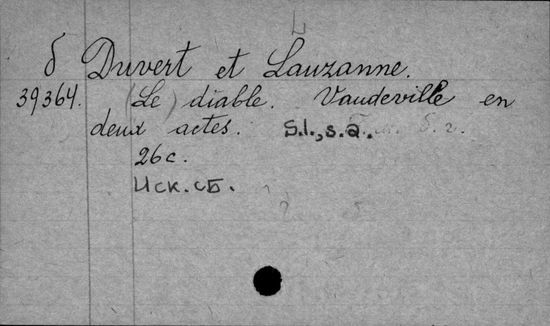 δ Duvert et Lauzanne.
39364. (Le) diable. Vaudeville en
deux actes. S.l., s.a.
26 c.
Иск. сб.